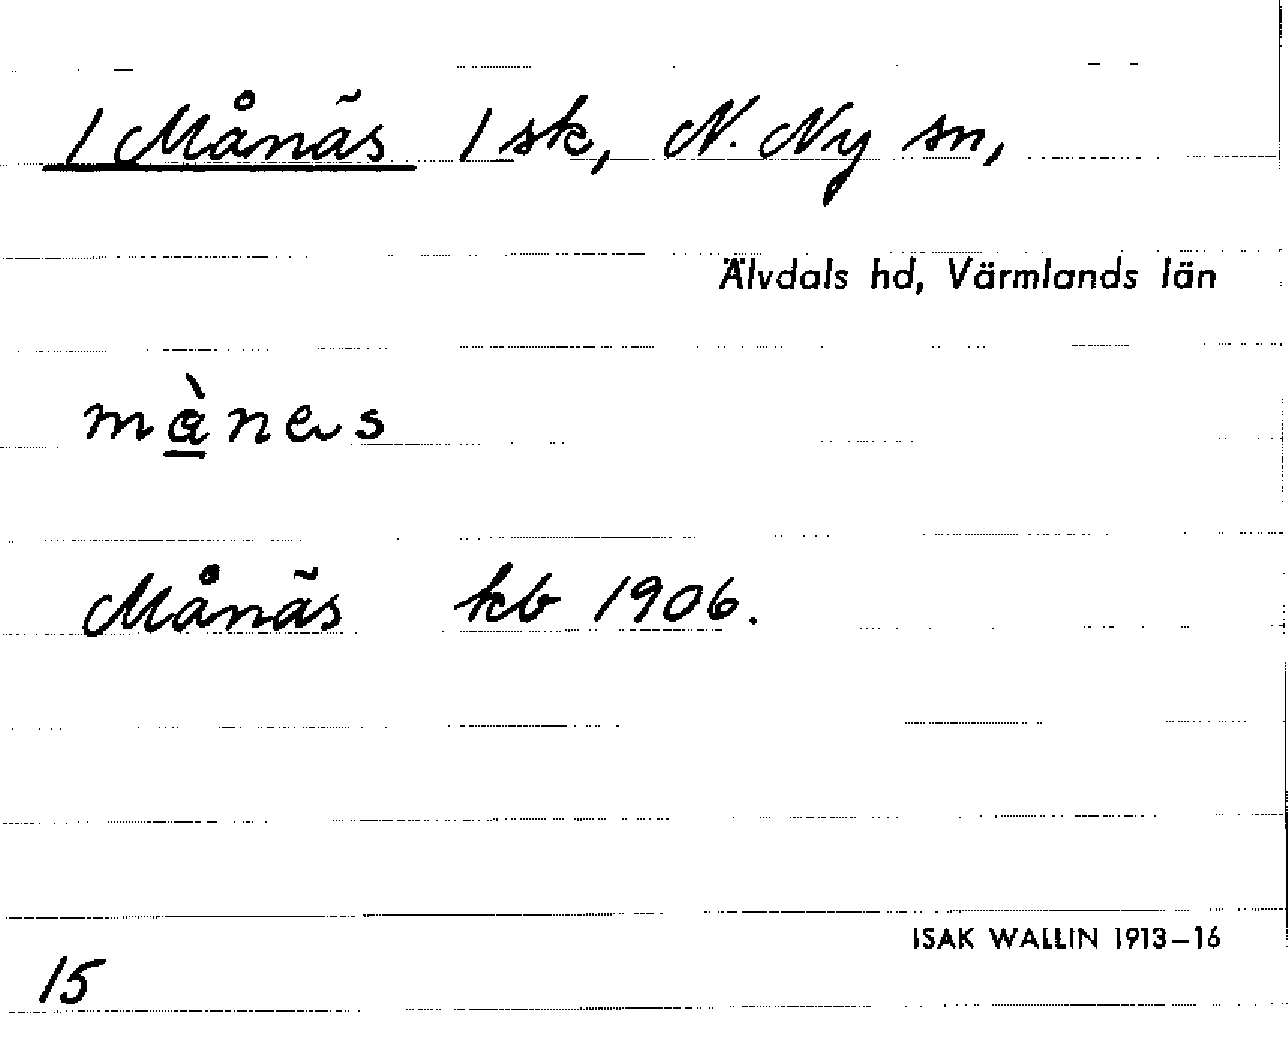 1 Månäs 1 sk, N. Ny sn,
Älvdals hd, Värmlands län
mànes
Månäs kb 1906.
ISAK WALLIN 1913–16
15